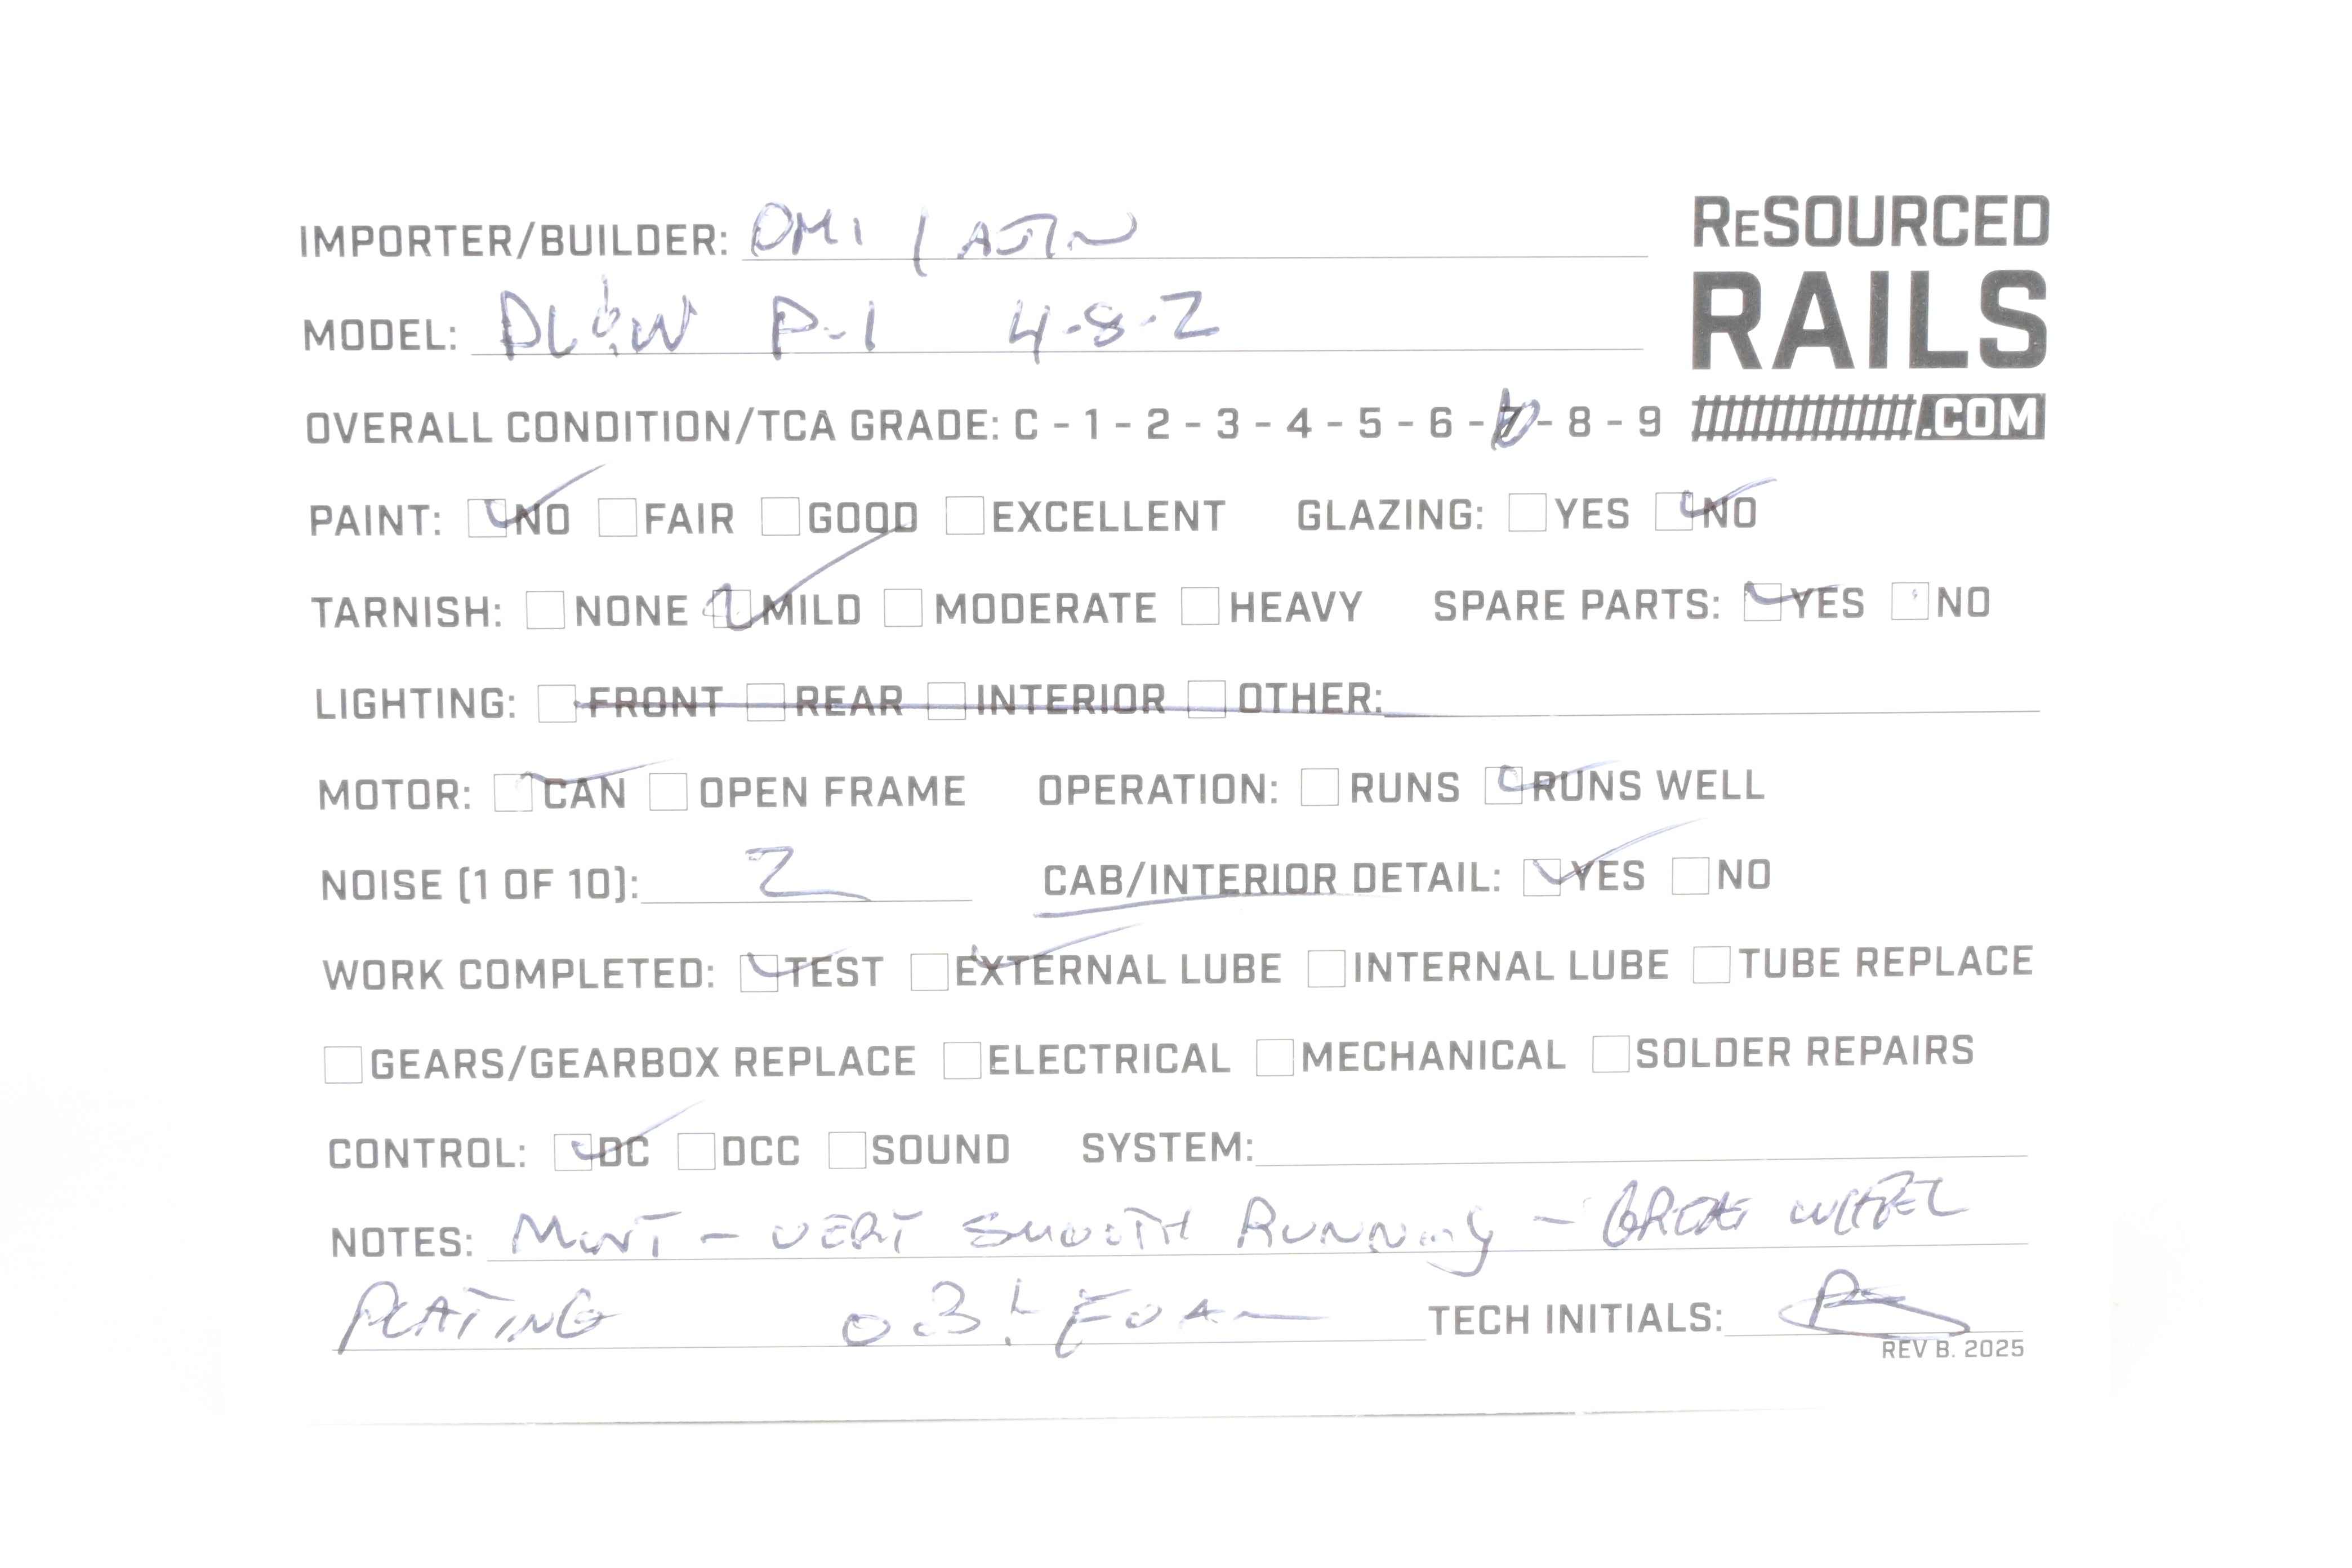 IMPORTER/BUILDER: OMI / AJIN
RESOURCED
RAILS
.COM
MODEL: DL&W P-1 4-8-2
OVERALL CONDITION/TCA GRADE: C - 1 - 2 - 3 - 4 - 5 - 6 - 7 - 8 - 9
PAINT: NO FAIR GOOD EXCELLENT GLAZING: YES NO
TARNISH: NONE MILD MODERATE HEAVY SPARE PARTS: YES NO
LIGHTING: FRONT REAR INTERIOR OTHER:
MOTOR: CAN OPEN FRAME OPERATION: RUNS RUNS WELL
NOISE (1 OF 10): 2 CAB/INTERIOR DETAIL: YES NO
WORK COMPLETED: TEST EXTERNAL LUBE INTERNAL LUBE TUBE REPLACE
GEARS/GEARBOX REPLACE ELECTRICAL MECHANICAL SOLDER REPAIRS
CONTROL: DC DCC SOUND SYSTEM:
NOTES: MINT - VERY SMOOTH RUNNING - GREAT WHEEL
PLATING OB! FOAM TECH INITIALS:
REV B. 2025